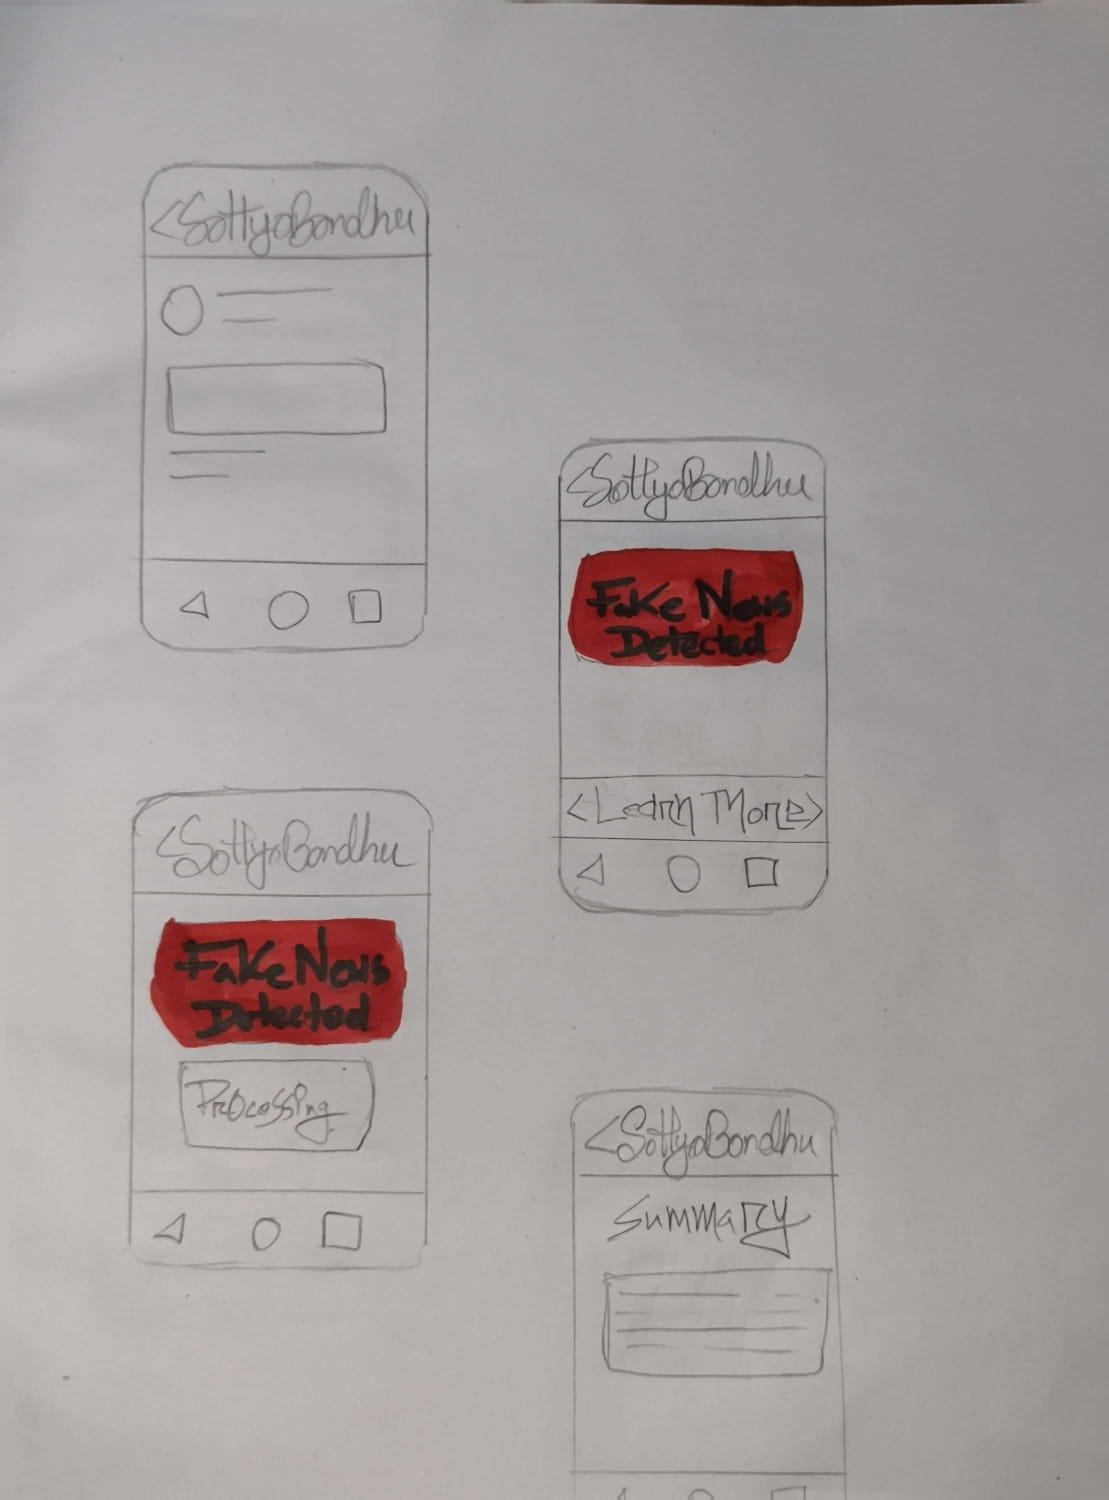 <SottyoBondhu
<SottyoBondhu
Fake News
Detected
<Learn More>
<SottyoBondhu
Fake News
Detected
Processing
<SottyoBondhu
Summary